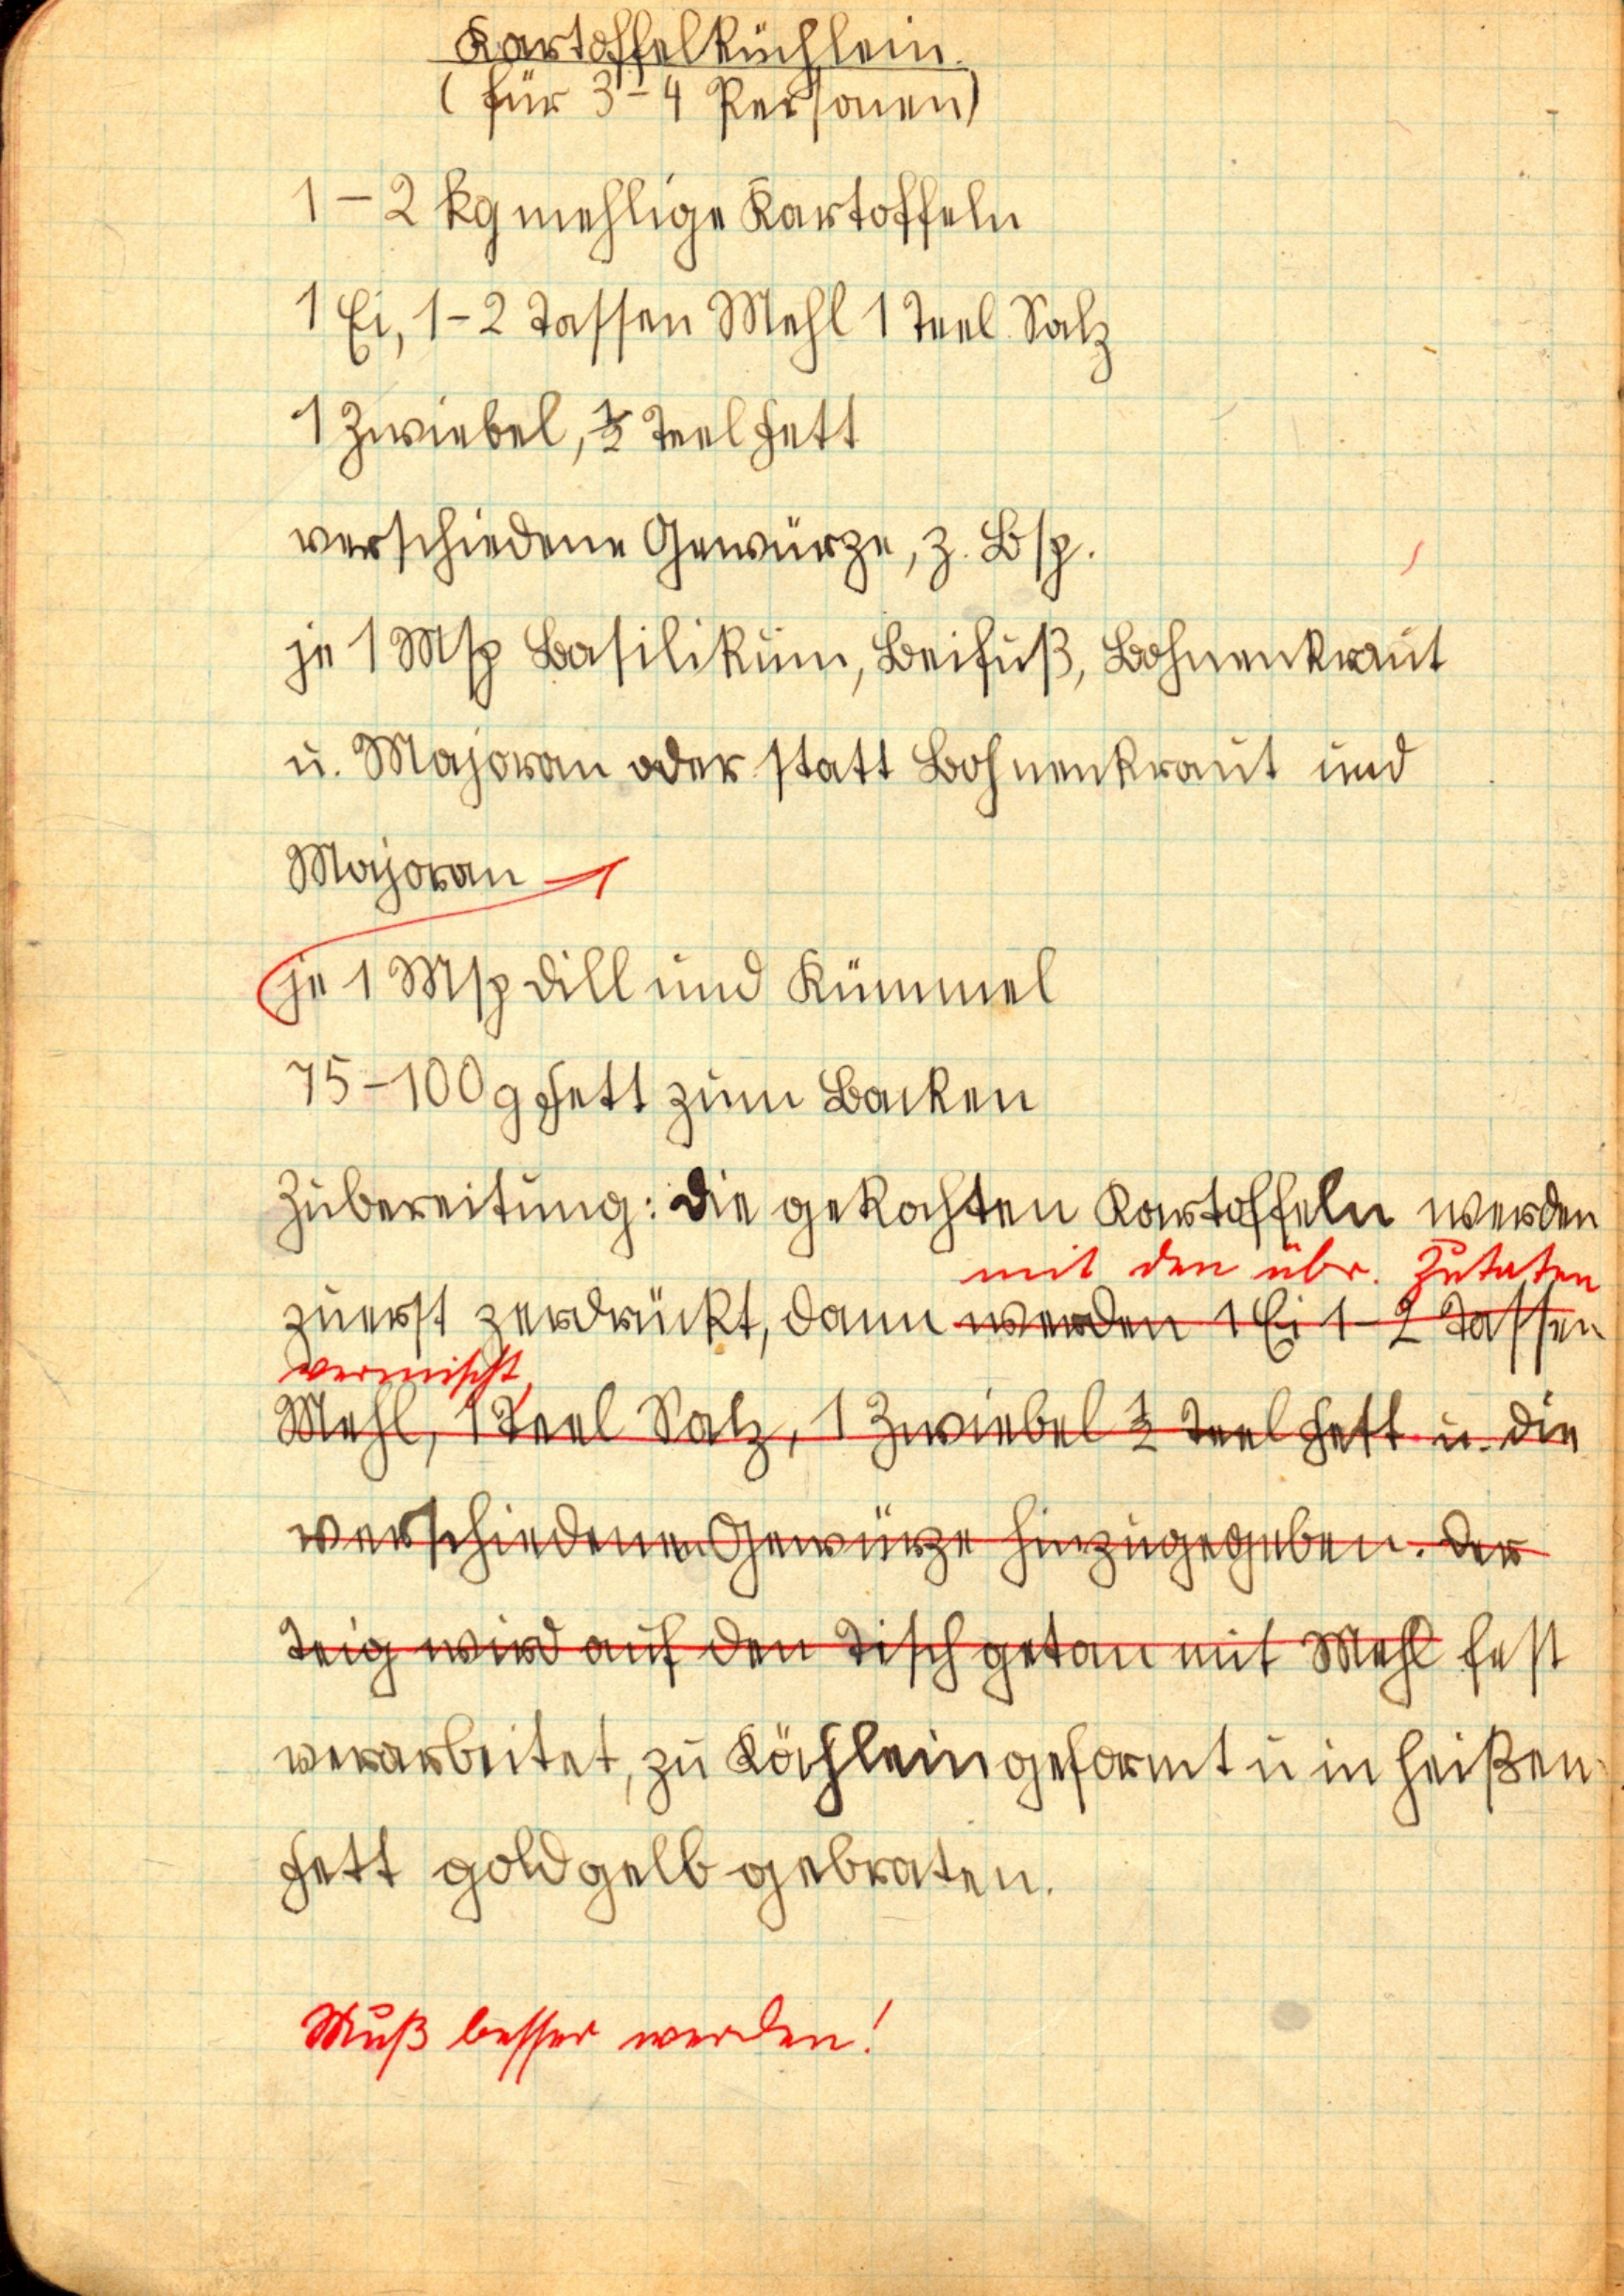 Kartoffelküchlein.
(für 3-4 Personen)
1-2 kg mehlige Kartoffeln
1 Ei, 1-2 Tassen Mehl 1 Teel Salz
1 Zwiebel, ½ Teel Fett
verschiedene Gewürze, z. Bsp.
je 1 Msp Basilikum, Beifuß, Bohnenkraut
u. Majoran oder statt Bohnenkraut und
Majoran
je 1 Msp Dill und Kümmel
75-100 g Fett zum Backen
Zubereitung: Die gekochten Kartoffeln werden
mit den übr. Zutaten
zuerst zerdrückt, dann werden 1 Ei 1-2 Tassen
vermischt,
Mehl, 1 Teel Salz, 1 Zwiebel ½ Teel Fett u. die
verschiedenen Gewürze hinzugegeben. Der
Teig wird auf den Tisch getan mit Mehl fest
verarbeitet, zu Köchlein geformt u in heißen
Fett goldgelb gebraten.
Muß besser werden!